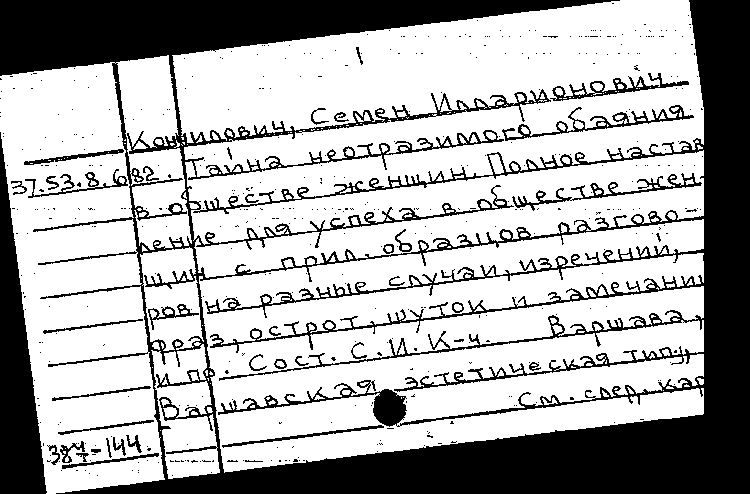 1
Кончилович, Семен Илларионович
37.53.8.682. Тайна неотразимого обаяния
в обществе женщин. Полное настав
ление для успеха в обществе жен-
щин с прил. образцов разгово-
ров на разные случаи, изречений,
фраз, острот, шуток и замечани
и пр. Сост. С. И. К-ч. Варшава,
Варшавская эстетическая тип.,
См. след. кар
387-144.